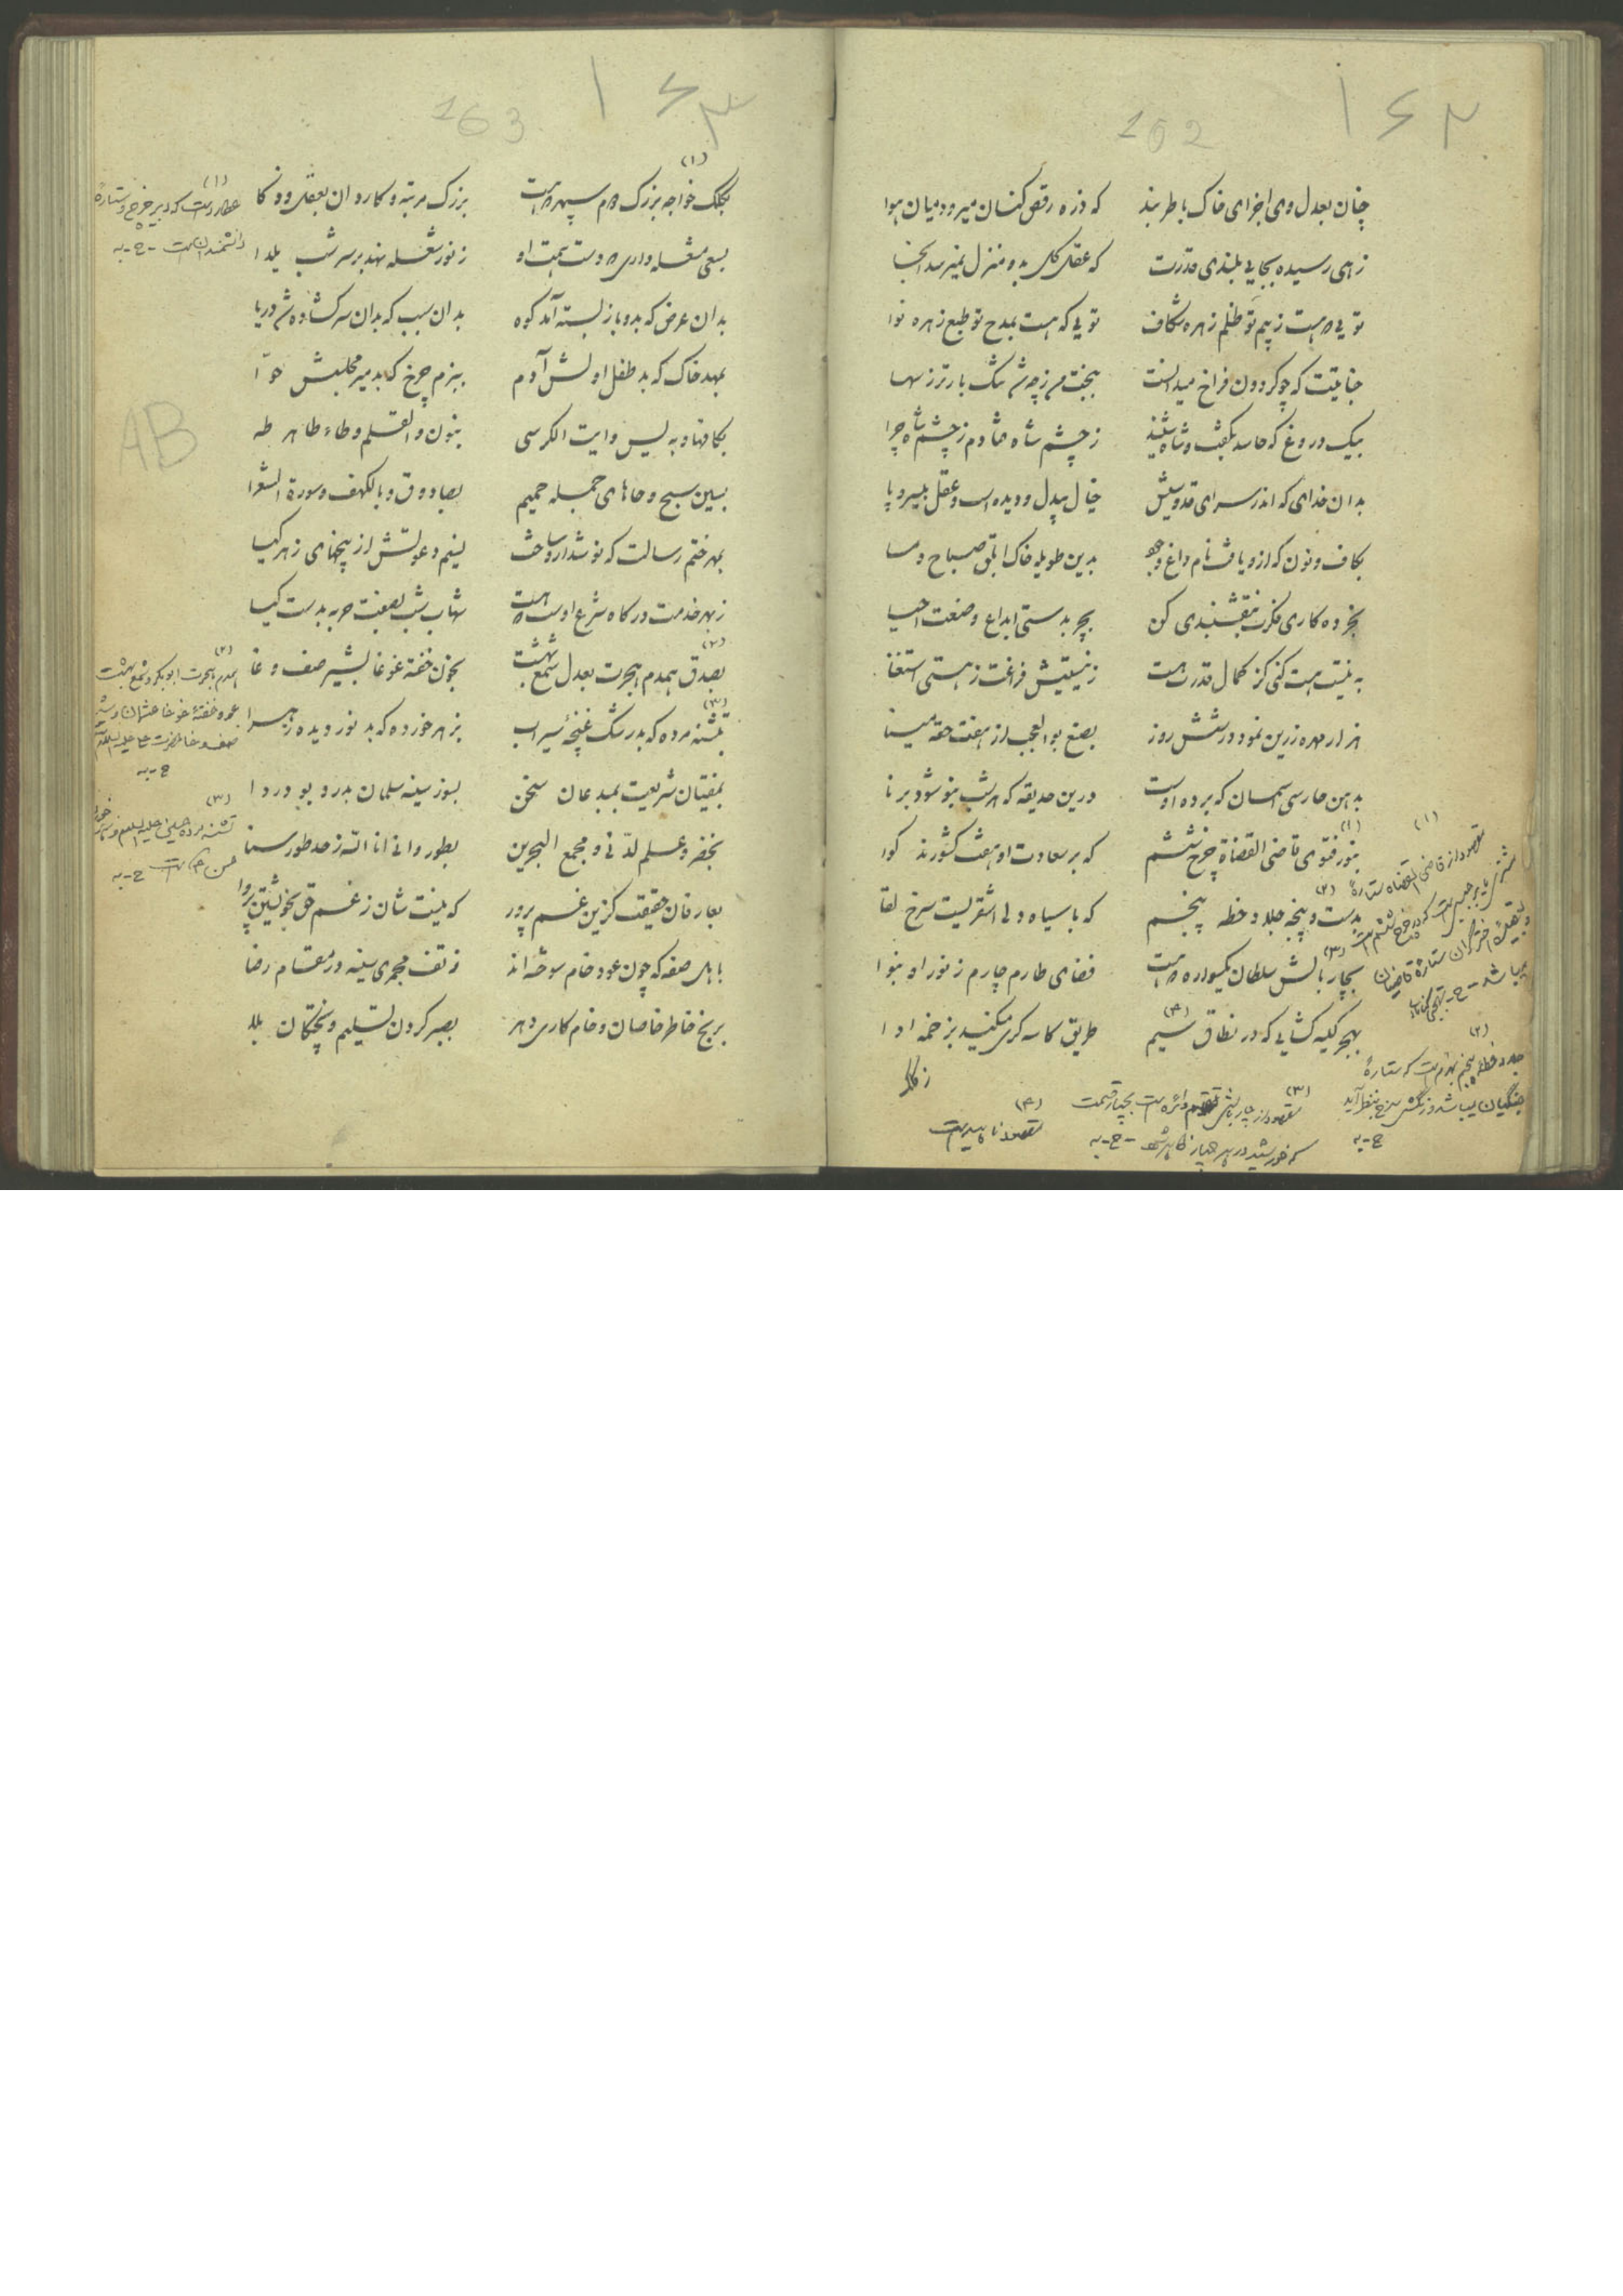 ۱۶۲
162
چنان بعدل وی اجزای خاک با طربند که ذره رقص کنان میرود میان هوا
زهی رسیده بجایی بلندی قدرت که عقل کل بدو منزل نمیرسد آنجا
تویی که هست ز بیم تو ظلم زهره شکاف تویی که هست بمدح تو طبع زهره نوا
جنابتت که چو گردون فراخ میدانست
بیک دروغ که حاسد بگفت و شاه شنید ز چشم شاه فتادم ز چشم شاه چرا
بدان خدای که اندر سرای قدوسیش خیال بیدل و دیده است و عقل بیسر و پا
بکاف و نون که ازو یافت نام داغ وجود بدین طویله خاک ابلق صباح و مسا
بخرده کاری فکرت بنقشبندی کن بچربدستی ابداع و صنعت احیا
به نیست هست کنی کز کمال قدرت هست ز نیستیش فراغت ز هستی استغنا
هزار مهره زرین نمود در شش روز بصنع بوالعجب از هفت حقه مینا
بدین حارسی آسمان که برده اوست درین حدیقه که هر شب بنو شود برنا
(۱)
بنور فتوی قاضی القضاة چرخ ششم که بر سعادت او هفت کشورند گوا
(۲)
بدست و پنجه جلاد خطه پنجم که با سیاه دلی اشقریست سرخ لقا
(۳)
بچار بالش سلطان یکسواره که هست فضای طارم چارم ز نور او بنوا
(۴)
بهجر کیسه گشایی که در نطاق سیم طریق کاسه گری میکنند بزخمه ادا
(۱)
مقصود از قاضی القضاه ستاره
مشتری یا برجیس است که در چرخ ششم است
و بعقیده اختر گران ستاره قاضیان
میباشد - ح-به
(۲)
جلاد خطه پنجم بهرام است که ستاره
جنگیان میباشد و رنگش سرخ بنظر آید
ح-به
(۳)
مقصود از چار بالش تقسیم دائره است بچهار قسمت
که خورشید در
ح-به
(۴)
مقصود ناهید است
۱۶۳
163
(۱)
بکلک خواجه بزرگ دوم سپهر که هست بزرگ مرتبه و کاردان بعقل و ذکا
بسعی مشعله داری که دست همت او ز نور شعله نهد بر سر شب یلدا
بدان عرض که بدو باز بسته آمد کوه بدان سبب که بدان سر گشاده شد دریا
بمهد خاک که بد طفل اولش آدم ببزم چرخ که بد میر مجلسش حوا
بکافها و به یس و آیت الکرسی بنون والقلم و طاء طاهر طه
بسین سبح و حاهای جمله حمیم بصاد و ق و بالکهف و سورة الشعرا
بمهر ختم رسالت که نوشدارو ساخت نسیم دعوتش از بیخهای زهر گیا
ز بهر خدمت درگاه شرع اوست که هست شهاب شب بصفت حربه بدست گیا
(۲)
بصدق همدم هجرت بعدل شمع بهشت بخون خفته غوغا بشیر صف وغا
(۳)
بتشنه مرده که بد رشک غنچه سیراب بزهر خورده که بد نور دیده زهرا
بمفتیان شریعت بمبدعان سخن بسوز سینه سلمان بدرد بودردا
بخضر و علم لدنی و مجمع البحرین بطور و انی انا الله ز حد طور سنا
بعارفان حقیقت گزین غم پرور که نیست شان ز غم حق بخویشتن پروا
باهل صفه که چون عود خام سوخته اند ز تف مجمری سینه در مقام رضا
برنج خاطر خاصان و خام کاری دهر بصبر کردن تسلیم و پختگان بلا
(۱)
عطارد است که دبیر چرخ و ستاره
دانشمندان است - ح-به
AB
(۲)
همدم هجرت ابوبکر و شمع بهشت
عمر و خفته غوغا عثمان و شیر
صف وغا حضرت علی علیه السلام
ح-به
(۳)
تشنه مرده حسین علیه السلام و زهر خورده
حسن ع است ح-به